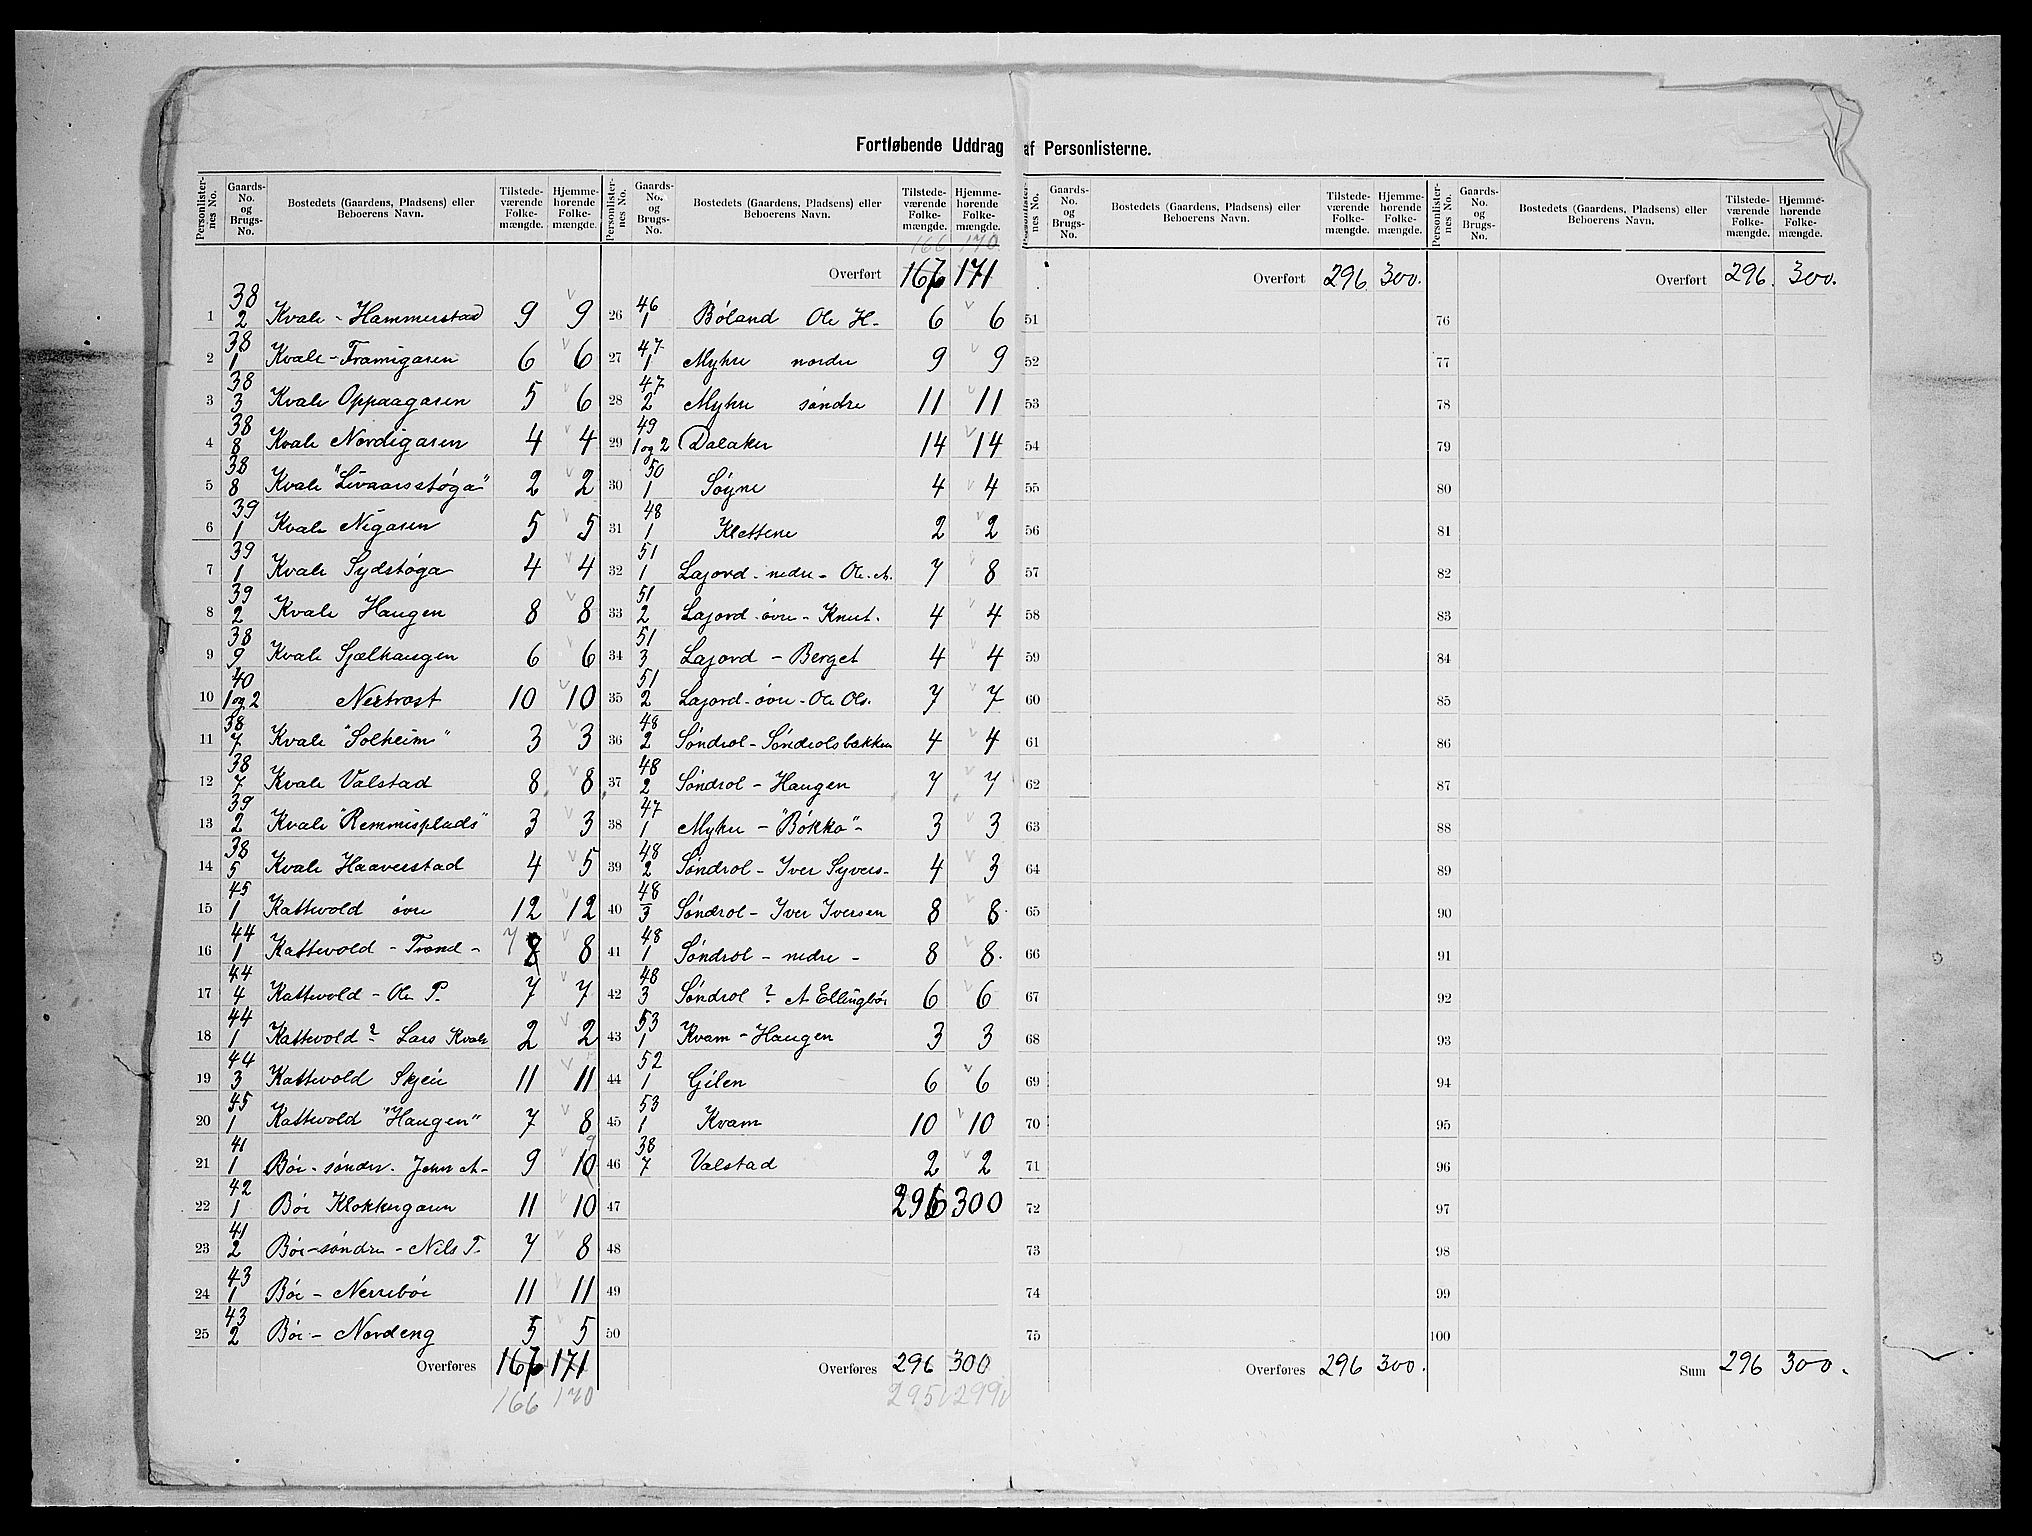 Fortløbende Uddrag af Personlisterne.
Personlister-nes No. | Gaards-No. og Brugs-No. | Bostedets (Gaardens, Pladsens) eller Beboerens Navn. | Tilstede-værende Folke-mængde. | Hjemme-hørende Folke-mængde.
1 | 38 2 | Kvale - Hammerstad | 9 | 9
2 | 38 1 | Kvale - Framigaren | 6 | 6
3 | 38 3 | Kvale Oppaagaren | 5 | 6
4 | 38 8 | Kvale Nordigaren | 4 | 4
5 | 38 8 | Kvale "Livaarsstøga" | 2 | 2
6 | 39 1 | Kvale Nigaren | 5 | 5
7 | 39 1 | Kvale Sydstøga | 4 | 4
8 | 39 2 | Kvale Haugen | 8 | 8
9 | 38 9 | Kvale Sjælhaugen | 6 | 6
10 | 40 1 og 2 | Nertrost | 10 | 10
11 | 38 7 | Kvale "Solheim" | 3 | 3
12 | 38 7 | Kvale Valstad | 8 | 8
13 | 39 2 | Kvale "Remmisplads" | 3 | 3
14 | 38 5 | Kvale Haaverstad | 4 | 5
15 | 45 1 | Kattevold øvre | 12 | 12
16 | 44 1 | Kattevold - Trond - | 7 8 | 8
17 | 44 4 | Kattevold - Ole P. | 7 | 7
18 | 44 1 | Kattevold ? Lars Kvale | 2 | 2
19 | 44 3 | Kattevold Skjeie | 11 | 11
20 | 45 1 | Kattevold "Haugen" | 7 | 8
21 | 41 1 | Bøe - søndre. Jens A- | 9 | 10 9
22 | 42 1 | Bøe Klokkergaren | 11 | 10
23 | 41 2 | Bøe - søndre - Nils T. | 7 | 8
24 | 43 1 | Bøe - Nerrebøe | 11 | 11
25 | 43 2 | Bøe - Nordeng | 5 | 5
Overføres | 167 | 171
166 | 170
Personlister-nes No. | Gaards-No. og Brugs-No. | Bostedets (Gaardens, Pladsens) eller Beboerens Navn. | Tilstede-værende Folke-mængde. | Hjemme-hørende Folke-mængde.
166 | 170
Overført | 167 | 171
26 | 46 1 | Bøland Ole H- | 6 | 6
27 | 47 1 | Myhre nordre | 9 | 9
28 | 47 2 | Myhre søndre | 11 | 11
29 | 49 1 og 2 | Dalaker | 14 | 14
30 | 50 1 | Søyne | 4 | 4
31 | 48 1 | Klettene | 2 | 2
32 | 51 1 | Lajord - nedre - Ole. A. | 7 | 8
33 | 51 2 | Lajord - øvre - Knut. | 4 | 4
34 | 51 3 | Lajord - Berget | 4 | 4
35 | 51 2 | Lajord - øvre - Ole Ols. | 7 | 7
36 | 48 2 | Søndrol - Søndrolsbakken | 4 | 4
37 | 48 2 | Søndrol - Haugen | 7 | 7
38 | 47 1 | Myhre - "Bøkko" - | 3 | 3
39 | 48 2 | Søndrol - Iver Syvers- | 4 | 3
40 | 48 3 | Søndrol - Iver Iversen | 8 | 8
41 | 48 1 | Søndrol - nedre - | 8 | 8.
42 | 48 3 | Søndrol ? A Ellingbøe | 6 | 6
43 | 53 1 | Kvam - Haugen | 3 | 3
44 | 52 1 | Gilen | 6 | 6
45 | 53 1 | Kvam | 10 | 10
46 | 38 7 | Valstad | 2 | 2
47 | 296 | 300
48
49
50
Overføres | 296 | 300
295 | 299
Personlister-nes No. | Gaards-No. og Brugs-No. | Bostedets (Gaardens, Pladsens) eller Beboerens Navn. | Tilstede-værende Folke-mængde. | Hjemme-hørende Folke-mængde.
Overført | 296 | 300.
51
52
53
54
55
56
57
58
59
60
61
62
63
64
65
66
67
68
69
70
71
72
73
74
75
Overføres | 296 | 300.
Personlister-nes No. | Gaards-No. og Brugs-No. | Bostedets (Gaardens, Pladsens) eller Beboerens Navn. | Tilstede-værende Folke-mængde. | Hjemme-hørende Folke-mængde.
Overført | 296. | 300.
76
77
78
79
80
81
82
83
84
85
86
87
88
89
90
91
92
93
94
95
96
97
98
99
100
Sum | 296 | 300.